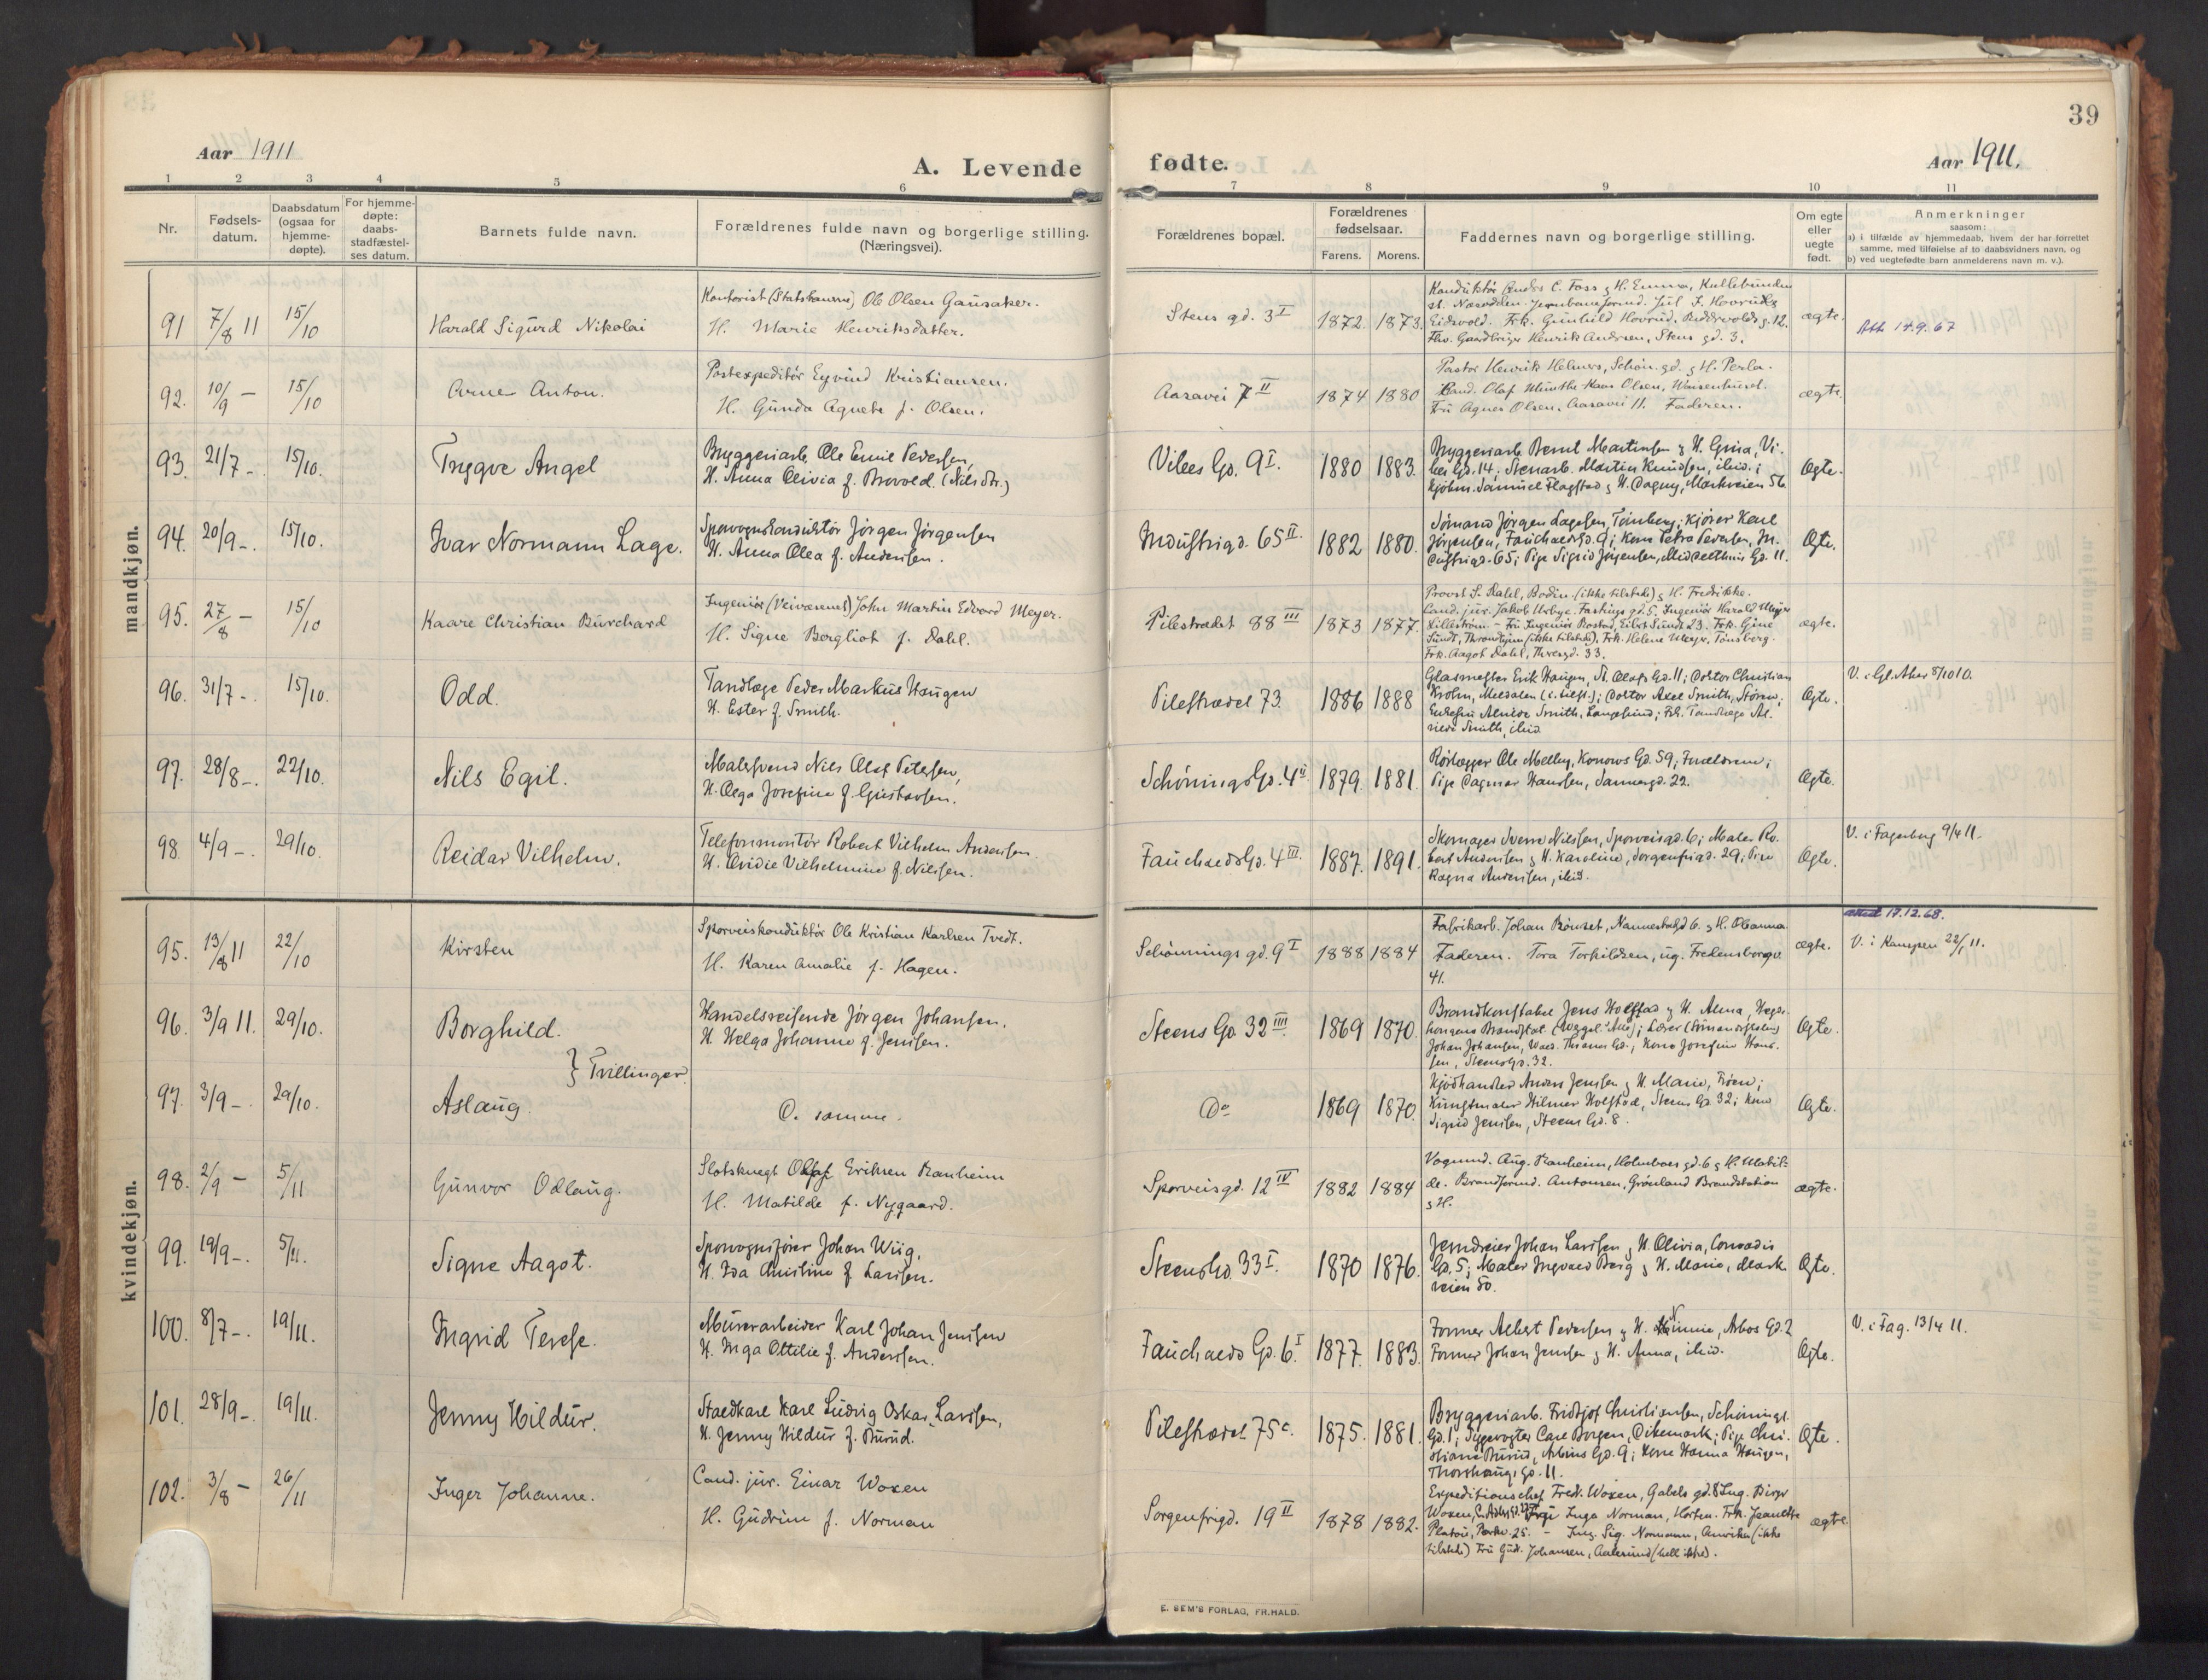 39
Aar 1911
A. Levende
fødte.
Aar 1911.
1 2 3 4 5 6 7 8 9 10 11
Nr.
Fødsels-
datum.
Daabsdatum
(ogsaa for
hjemme-
døpte).
For hjemme-
døpte:
daabs-
stadfæstel-
ses datum.
Barnets fulde navn.
Forældrenes fulde navn og borgerlige stilling.
(Næringsvei).
Forældrenes bopæl.
Forældrenes
fødselsaar.
Farens. Morens.
Faddernes navn og borgerlige stilling.
Om egte
eller
uegte
født.
Anmerkninger
saasom:
a) i tilfælde av hjemmedaab, hvem der har forrettet
samme, med tilføielse af to daabsvidners navn, og
b) ved uegtefødte barn anmelderens navn m. v.).
mandkjøn.
91 7/8 11 15/10 Harald Sigurd Nikolai
Kontorist (Statsbanerne) Ole Olsen Gausaker.
H. Marie Henriksdatter.
Stens gd. 3 I 1872. 1873.
Konduktør Anders C. Foss & H. Emma, Kullebunden
st. Næsodden. Jernbaneformd. Jul. F. Hovrud,
Eidsvold. Frk. Gunhild Hovrud,
Fhv. Gaardbruger Henrik Andersen, Stens gd. 3.
ægte.
Att 14.9.67
92. 10/9 - 15/10 Arne Anton.
Postexpeditør Eyvind Kristiansen.
H. Gunda Agnete f. Olsen.
Aasavei 7 II 1874 1880
Pastor Henrik Helmers, Schøn. gd. & H. Perla.
Cand. Olaf Munthe-Kaas Olsen, Waisenhuset.
Fru Agnes Olsen, Aasavei 11. Faderen.
ægte.
93. 21/7 -. 15/10. Trygve Angel
Bryggeriarb. Ole Emil Pedersen,
H. Anna Olivia f. Brovold. (Nils Str.)
Vibes Gd. 9 I. 1880 1883.
Bryggeriarb. Bernt Martinsen & H. Gina, Vi-
bes Gd. 14; Stenarb. Martin Knudsen, ibid.;
Kjøbm. Samuel Flagstad & H. Dagny, Markveien 56.
Ægte.
94. 20/9 -. 15/10. Ivar Normann Lage.
Sporvognskonduktør Jørgen Jørgensen
H. Anna Olea f. Andersen.
Industrigd. 65 II. 1882 1880.
Sømand Jørgen Lagesen, Tønsberg; Kjører Karl
Jørgensen, Fauchaldsgd. 9; Kone Petra Pedersen, In-
dustrigd. 65; Pige Sigrid Jørgensen, Middelthuns Gd. 11.
Ægte.
95. 27/8 - 15/10 Kaare Christian Burchard
Ingeniør (Veivæsenet) John Martin Edvard Meyer.
H. Signe Bergliot f. Dahl.
Pilestrædet 88 III 1873 1877.
Provst L. Dahl, Bodin. (ikke tilstede) & H. Fredrikke.
Cand. jur. Jakob Urbye, Fastings gd. 5. Ingeniør Harald Meyer
Lillestrøm. - Fru Ingeniør Bostad, Eilert Sundt 23. Frk. Gine
Sundt, Throndhjem (ikke tilstede), Frk. Helene Meyer, Tønsberg.
Frk. Aagot Dahl, Theresgd. 33.
ægte.
96. 31/7 -. 15/10. Odd.
Tandlæge Peder Markus Haugen
H. Ester f. Smith.
Pilestrædet 73. 1886 1888
Glasmester Erik Haugen, St. Olafs Gd. 11; Doktor Christian
Krohn, Meldalen (i. tilst.); Doktor Axel Smith, Støren;
Enkefru Alvilde Smith, Langesund; Frk. Tandlæge Al-
vilde Smith, ibid.
Ægte.
V. i Gl. Aker 8/10 10.
97. 28/8 -. 22/10. Nils Egil.
Malersvend Nils Olaf Petersen,
H. Olga Josefine f. Gustavsen.
Schönings Gd. 4 II 1879. 1881.
Rørlægger Ole Melby, Konows Gd. 59; Forældrene;
Pige Dagmar Hansen, Sannergd. 22.
Ægte.
98. 4/9 -. 29/10. Reidar Vilhelm.
Telefonmontør Robert Vilhelm Andersen.
H. Ovidie Vilhelmine f. Nilsen.
Fauchalds Gd. 4 III. 1887. 1891.
Skomager Sverre Nilsen, Sporveisgd. 6; Maler Ro-
bert Andersen & H. Karoline, Sorgenfrigd. 29; Pike
Ragna Andersen, ibid.
Ægte.
V. i Fagerborg 9/4 11.
kvindekjøn.
95. 13/8 11 22/10 Kirsten
Sporveiskonduktør Ole Kristian Karlsen Tvedt.
H. Karen Amalie f. Hagen.
Schønnings gd. 9 I 1888 1884
Fabrikarb. Johan Rønset, Nannestadgd 6. & H. Oleanna
Faderen. Tora Torkildsen, ug. Fredensborgv.
41.
ægte.
17.12.68.
V. i Kampen 22/1 11.
96. 3/9 11. 29/10. Borghild.
Handelsreisende Jørgen Johansen.
H. Helga Johanne f. Jensen.
Steens Gd. 32 IIII 1869 1870.
Brandkonstabel Jens Holstad & H. Alma,
Johan Johansen, Kone Josefine Han-
sen, Steensgd. 32.
Ægte.
} Tvillinger.
97. 3/9 -. 29/10. Aslaug.
D. samme.
Do 1869 1870.
Kjødhandler Anders Jensen & H. Marie, Frøen;
Kunstmaler Hilmer Holstad, Steens Gd. 32; Kone
Sigrid Jensen, Steens Gd. 8.
Ægte.
98. 2/9 - 5/11 Gunvor Odlaug.
Slotsknegt Olaf Eriksen Ranheim
H. Matilde f. Nygaard.
Sporveisgd. 12 IV 1882 1884
Vognmd. Aug. Ranheim, Holmboes gd. 6 & H. Matil-
de. Brandformd. Antonsen, Grønland Brandstation
& H.
ægte.
99. 19/9 -. 5/11. Signe Aagot.
Sporvognsfører Johan Wiig,
H. Ida Christine f. Larsen.
Steensgd. 33 I. 1870 1876.
Jerndreier Johan Larsen & H. Olivia, Conradis
Gd. 5; Maler Ingvald Berg & H. Marie, Mark-
veien 50.
Ægte.
100. 8/7 -. 19/11. Ingrid Terese.
Murerarbeider Karl Johan Jensen
H. Inga Ottilie f. Andersen.
Fauchalds Gd. 6 I. 1877. 1883.
Former Albert Pedersen & H. Minnie, Arbos Gd. 2
Former Johan Jensen & H. Anna, ibid.
Ægte.
V. i Fag. 13/4 11.
101. 28/9 -. 19/11. Jenny Hildur.
Staldkarl Karl Ludvig Oskar Larsen,
H. Jenny Hildur f. Burud.
Pilestrædet 75 c. 1875. 1881.
Bryggeriarb. Fridtjof Christiansen, Schønings
Gd. 1; Sygevogter Carl Borgen, Dikemark; Pige Chri-
stiane Burud, Arbins Gd. 9; Kone Hanna Haugen,
Thorshaugs Gd. 11.
Ægte.
102. 3/8 - 26/11 Inger Johanne.
Cand. jur. Einar Woxen
H. Gudrun f. Norman
Sorgenfrigd. 19 II 1878 1882.
Expeditionschef Fred. Woxen, Gabels gd. 8 Ing. Birger
Woxen, Fru Inga Norman, Horten. Frk. Jeanette
Platou, Parkv. 25. - Ing. Sig. Normann, Amerika (ikke
tilstede) Fru Gudr. Johansen, Aalesund (hell ikke).
ægte.
E. SEM'S FORLAG, FR.HALD.